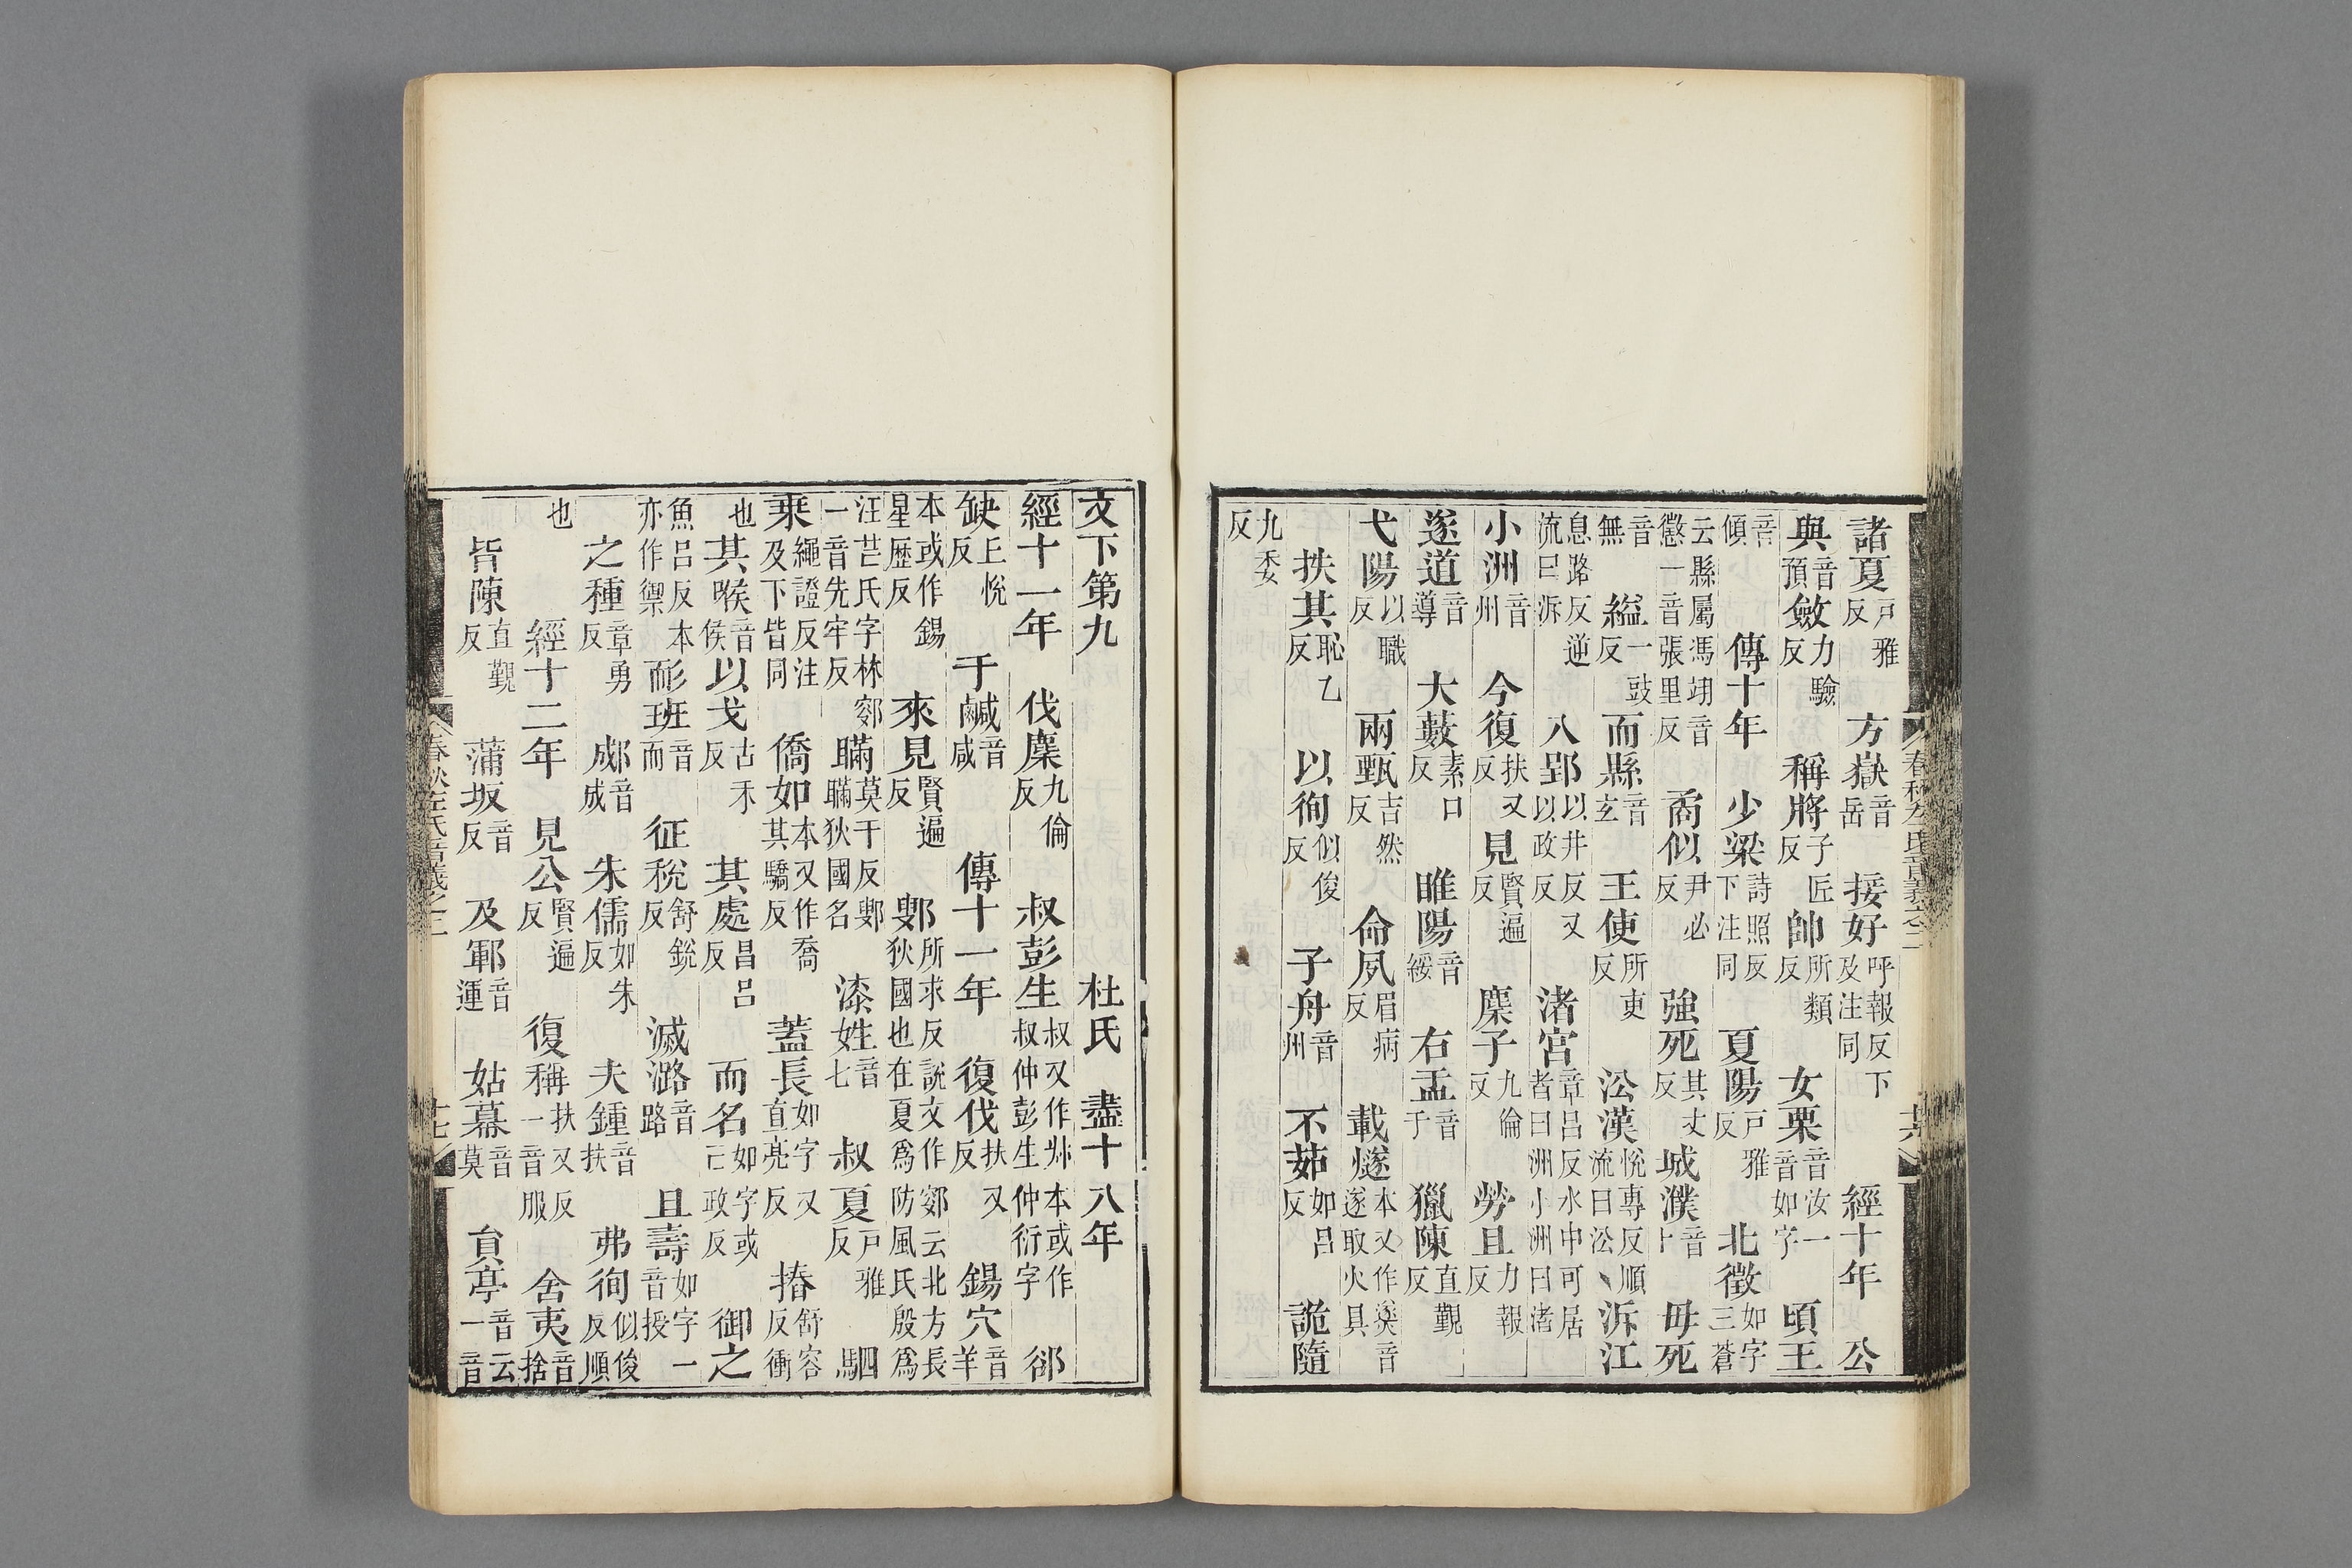 諸夏戸雅反　方嶽音岳　接好呼報反下及注同　經十年　公
與音預　斂力驗反　稱將子匠反　帥所類反　女栗音汝一音如字　頃王
音傾　傳十年　少梁詩照反下注同　夏陽戸雅反　北徵如字三蒼
云縣屬馮翊音懲一音張里反　矞似尹必反　強死其丈反　城濮音卜　毋死
音無　縊一豉反　而縣音玄　王使所吏反　沿漢悅專反順流曰沿　泝江
息路反逆流曰泝　入郢以井反又以政反　渚宮章呂反水中可居者曰洲小洲曰渚
小洲音州　今復扶又反　見賢遍反　麇子九倫反　勞且力報反
遂道音導　大藪素口反　睢陽音綏　右盂音于　獵陳直覲反
弋陽以職反　兩甄吉然反　命夙眉病反　載燧本又作㸂音遂取火具
抶其恥乙反　以徇似俊反　子舟音州　不茹如呂反　詭隨
九委反
春秋左氏音義之二　十六
文下第九　杜氏　盡十八年
經十一年　伐麇九倫反　叔彭生叔又作尗本或作叔仲彭生仲衍字　郤
缺丘悅反　于鹹音咸　傳十一年　復伐扶又反　錫穴音羊
本或作鍚星歷反　來見賢遍反　鄋所求反說文作鄋云北方長狄國也在夏爲防風氏殷爲
汪芒氏字林一音先牢反　瞞莫干反鄋瞞狄國名　漆姓音七　叔夏戸雅反　駟
乘繩證反注及下皆同　僑如本又作喬其驕反　蓋長如字又直亮反　摏舒容反衝
也　其喉音侯　以戈古禾反　其處昌呂反　而名如字或亡政反　御之
魚呂反本亦作禦　耏班音而　征稅舒銳反　滅潞音路　且壽如字一音授
之種章勇反　郕音成　朱儒如朱反　夫鍾音扶　弗徇似俊反順
也　經十二年　見公賢遍反　復稱扶又反一音服　舍夷音捨
皆陳直覲反　蒲坂音反　及鄆音運　姑幕音莫　員亭音云一音
春秋左氏音義之三　十七